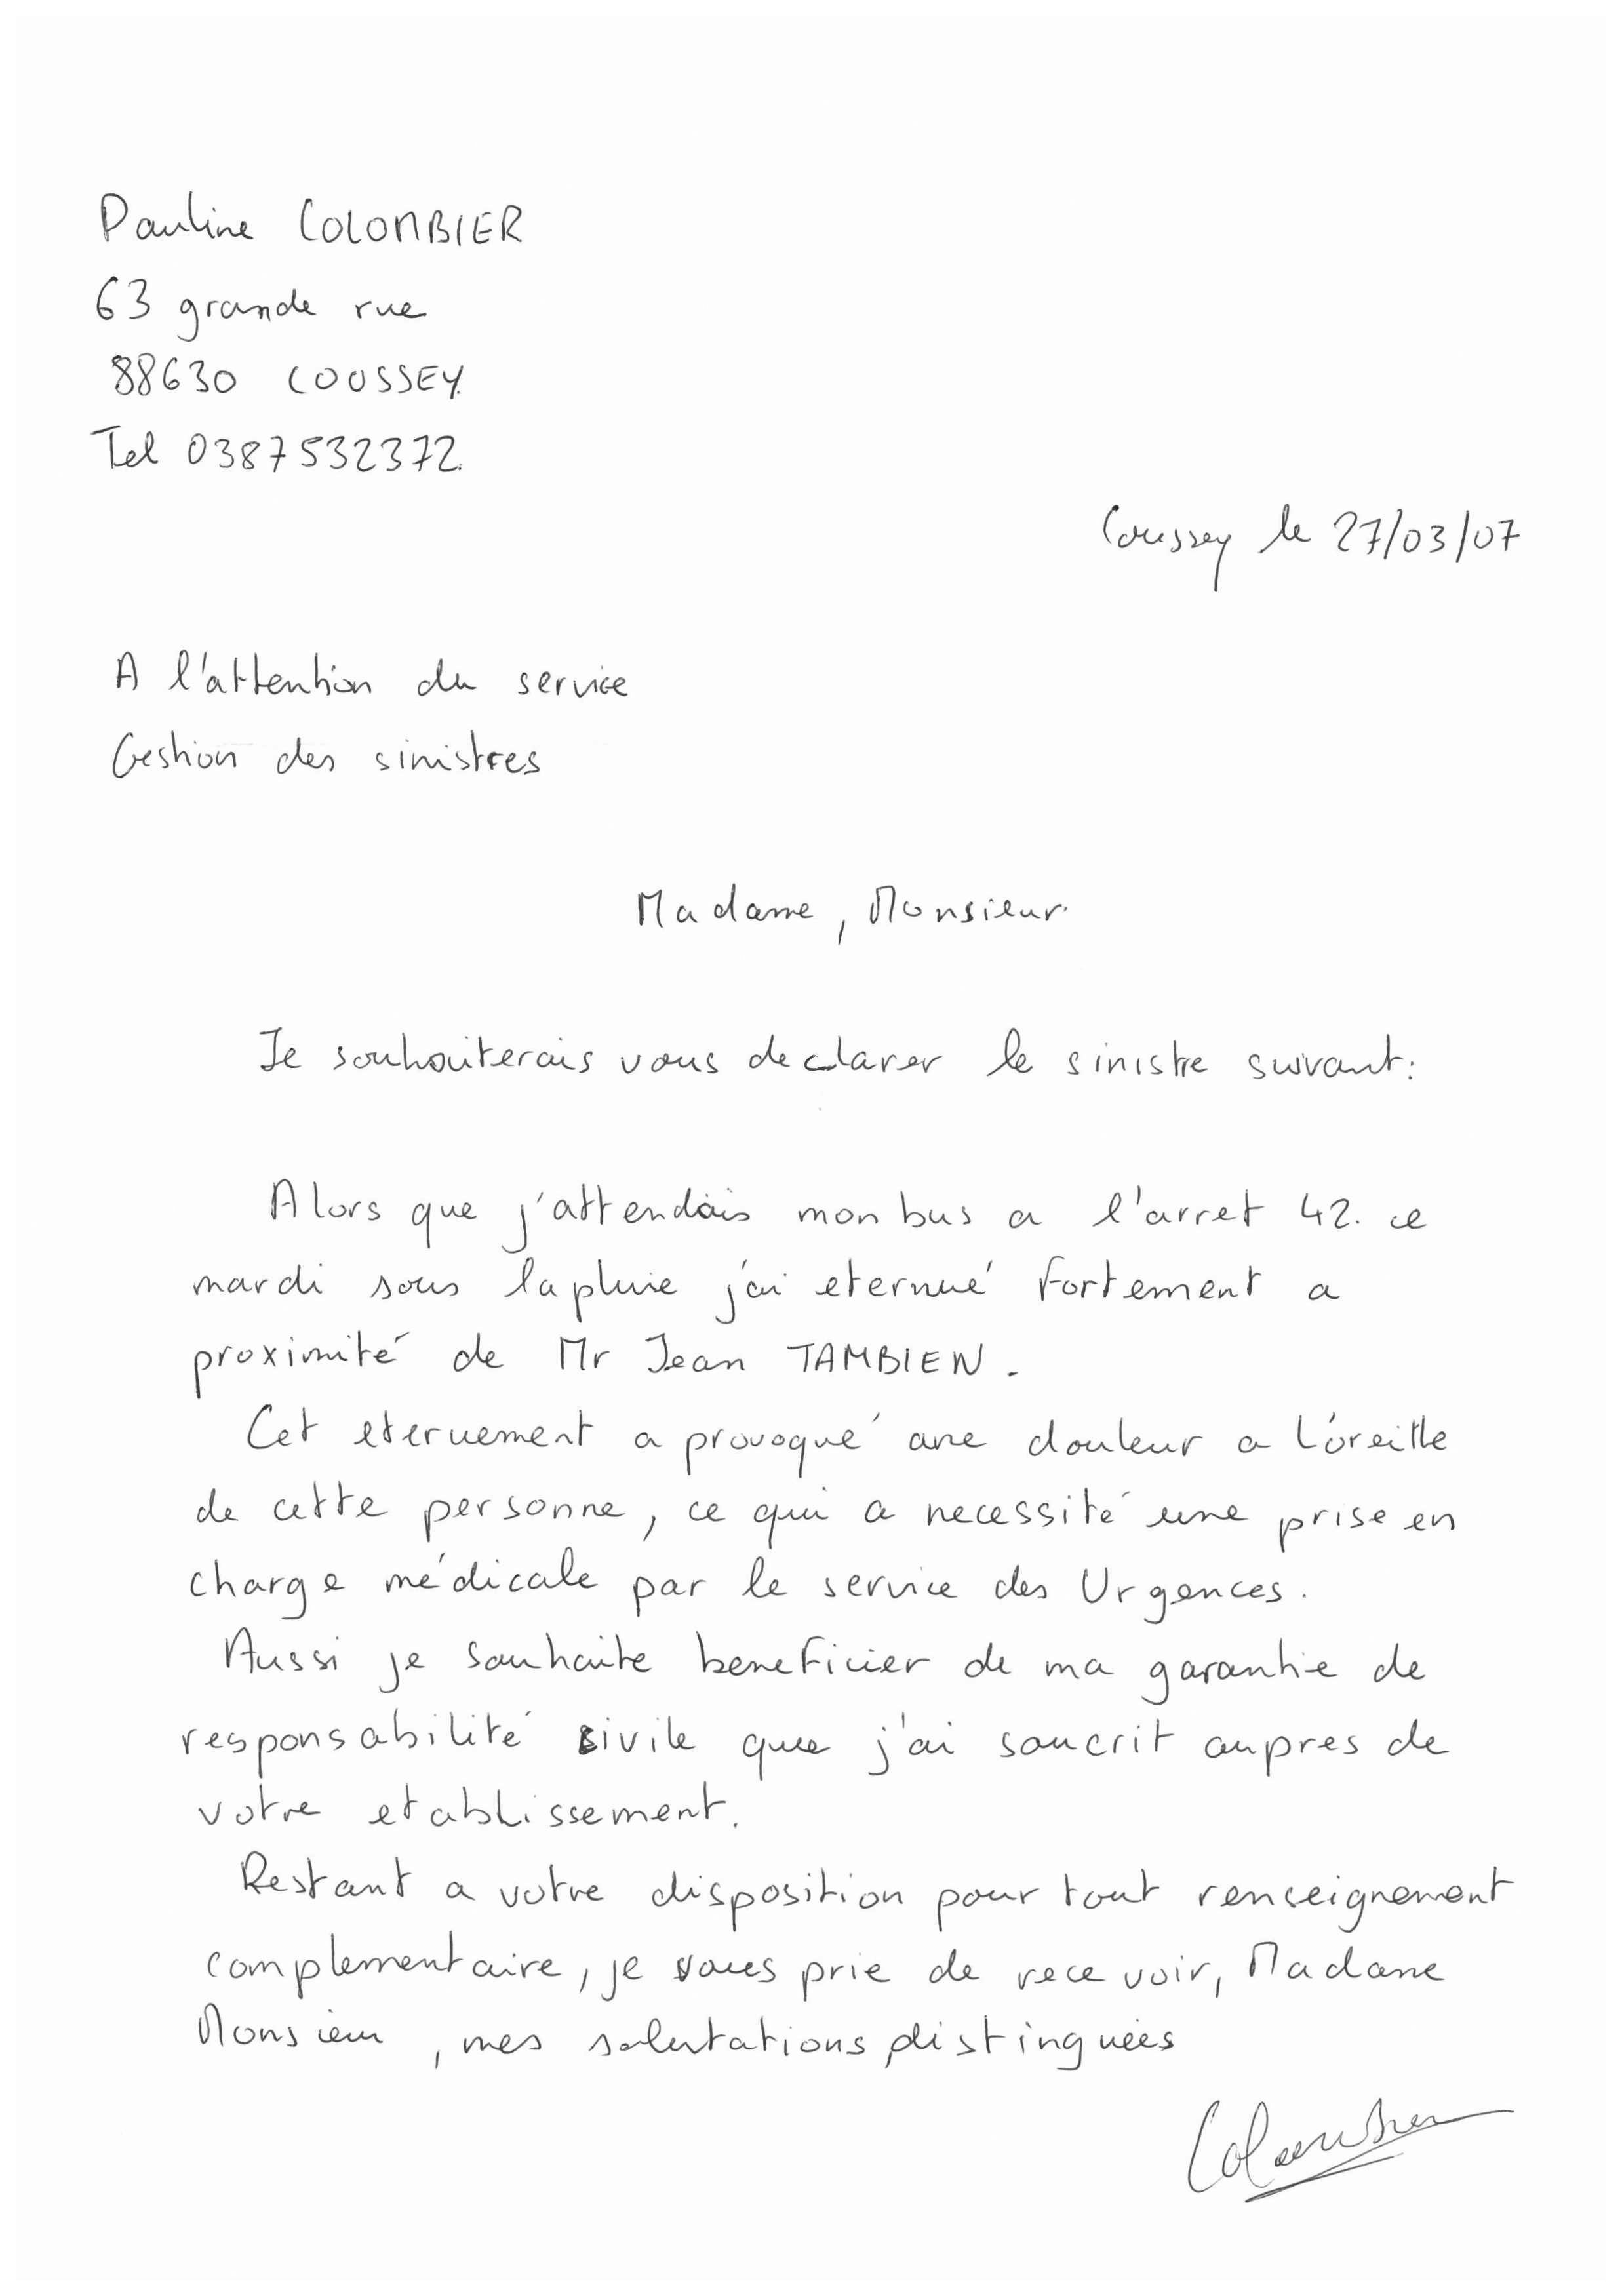 Pauline COLOMBIER
63 grande rue
88630 COUSSEY.
Tel 0387532372.
Coussey le 27/03/07
A l'attention du service
Gestion des sinistres
Madame, Monsieur.
Je souhaiterais vous declarer le sinistre suivant:
Alors que j'attendais mon bus a l'arret 42. ce
mardi sous la pluie j'ai eternué fortement a
proximité de Mr Jean TAMBIEN.
Cet eternuement a provoqué une douleur a l'oreille
de cette personne, ce qui a necessité une prise en
charge médicale par le service des Urgences.
Aussi je souhaite beneficier de ma garantie de
responsabilité civile que j'ai soucrit aupres de
votre etablissement.
Restant a votre disposition pour tout renseignement
complementaire, je vous prie de recevoir, Madame
Monsieur, mes salutations distinguées
Colombier